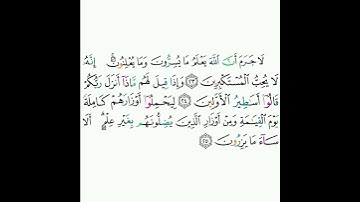 لَا جَرَمَ أَنَّ ٱللَّهَ يَعْلَمُ مَا يُسِرُّونَ وَمَا يُعْلِنُونَۚ إِنَّهُۥ
لَا يُحِبُّ ٱلْمُسْتَكْبِرِينَ ٢٣ وَإِذَا قِيلَ لَهُم مَّاذَآ أَنزَلَ رَبُّكُمْ
قَالُوٓا۟ أَسَٰطِيرُ ٱلْأَوَّلِينَ ٢٤ لِيَحْمِلُوٓا۟ أَوْزَارَهُمْ كَامِلَةً
يَوْمَ ٱلْقِيَٰمَةِ وَمِنْ أَوْزَارِ ٱلَّذِينَ يُضِلُّونَهُم بِغَيْرِ عِلْمٍۗ أَلَا
سَآءَ مَا يَزِرُونَ ٢٥